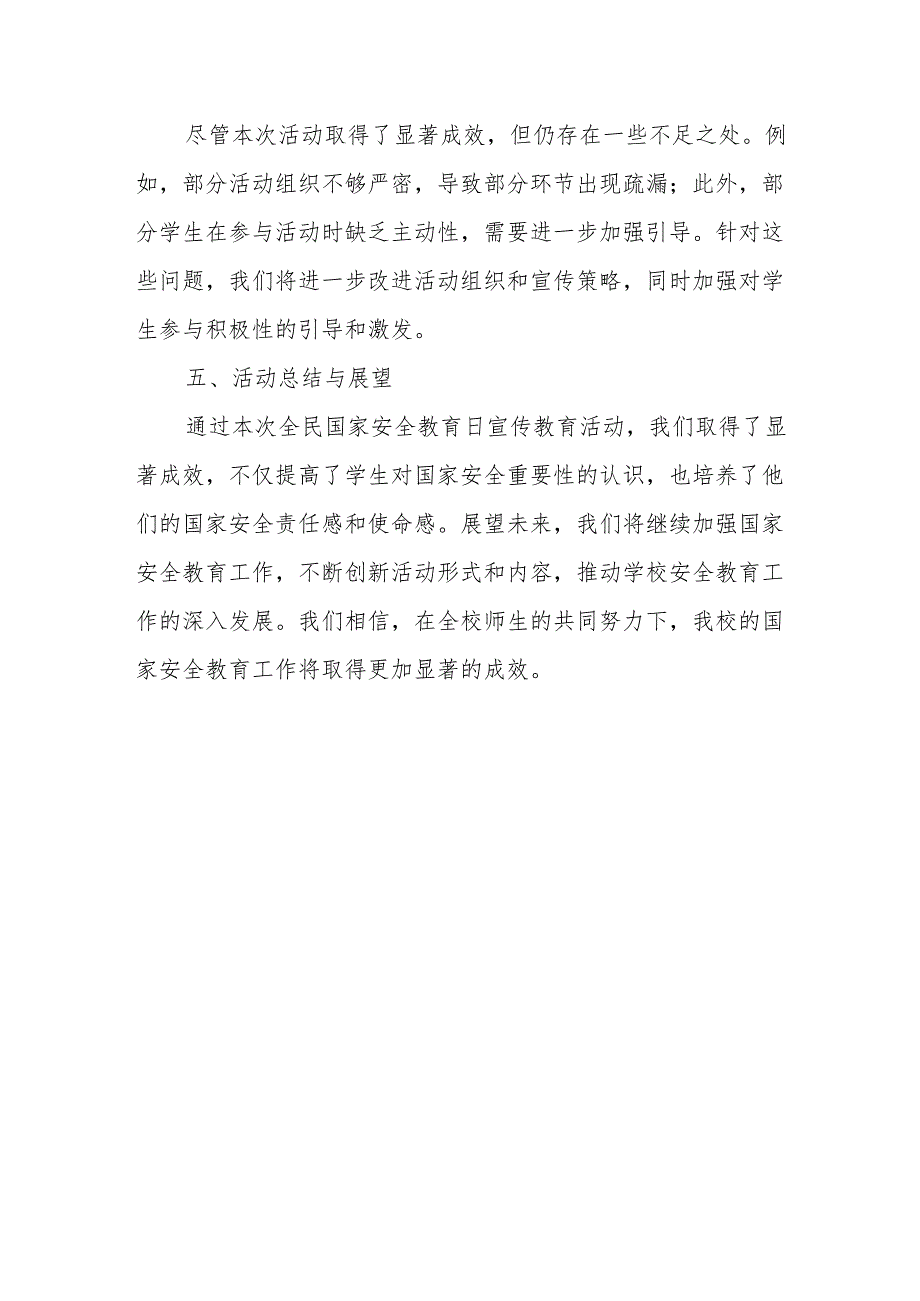 尽管本次活动取得了显著成效，但仍存在一些不足之处。例
如，部分活动组织不够严密，导致部分环节出现疏漏；此外，部
分学生在参与活动时缺乏主动性，需要进一步加强引导。针对这
些问题，我们将进一步改进活动组织和宣传策略，同时加强对学
生参与积极性的引导和激发。
五、活动总结与展望
通过本次全民国家安全教育日宣传教育活动，我们取得了显
著成效，不仅提高了学生对国家安全重要性的认识，也培养了他
们的国家安全责任感和使命感。展望未来，我们将继续加强国家
安全教育工作，不断创新活动形式和内容，推动学校安全教育工
作的深入发展。我们相信，在全校师生的共同努力下，我校的国
家安全教育工作将取得更加显著的成效。